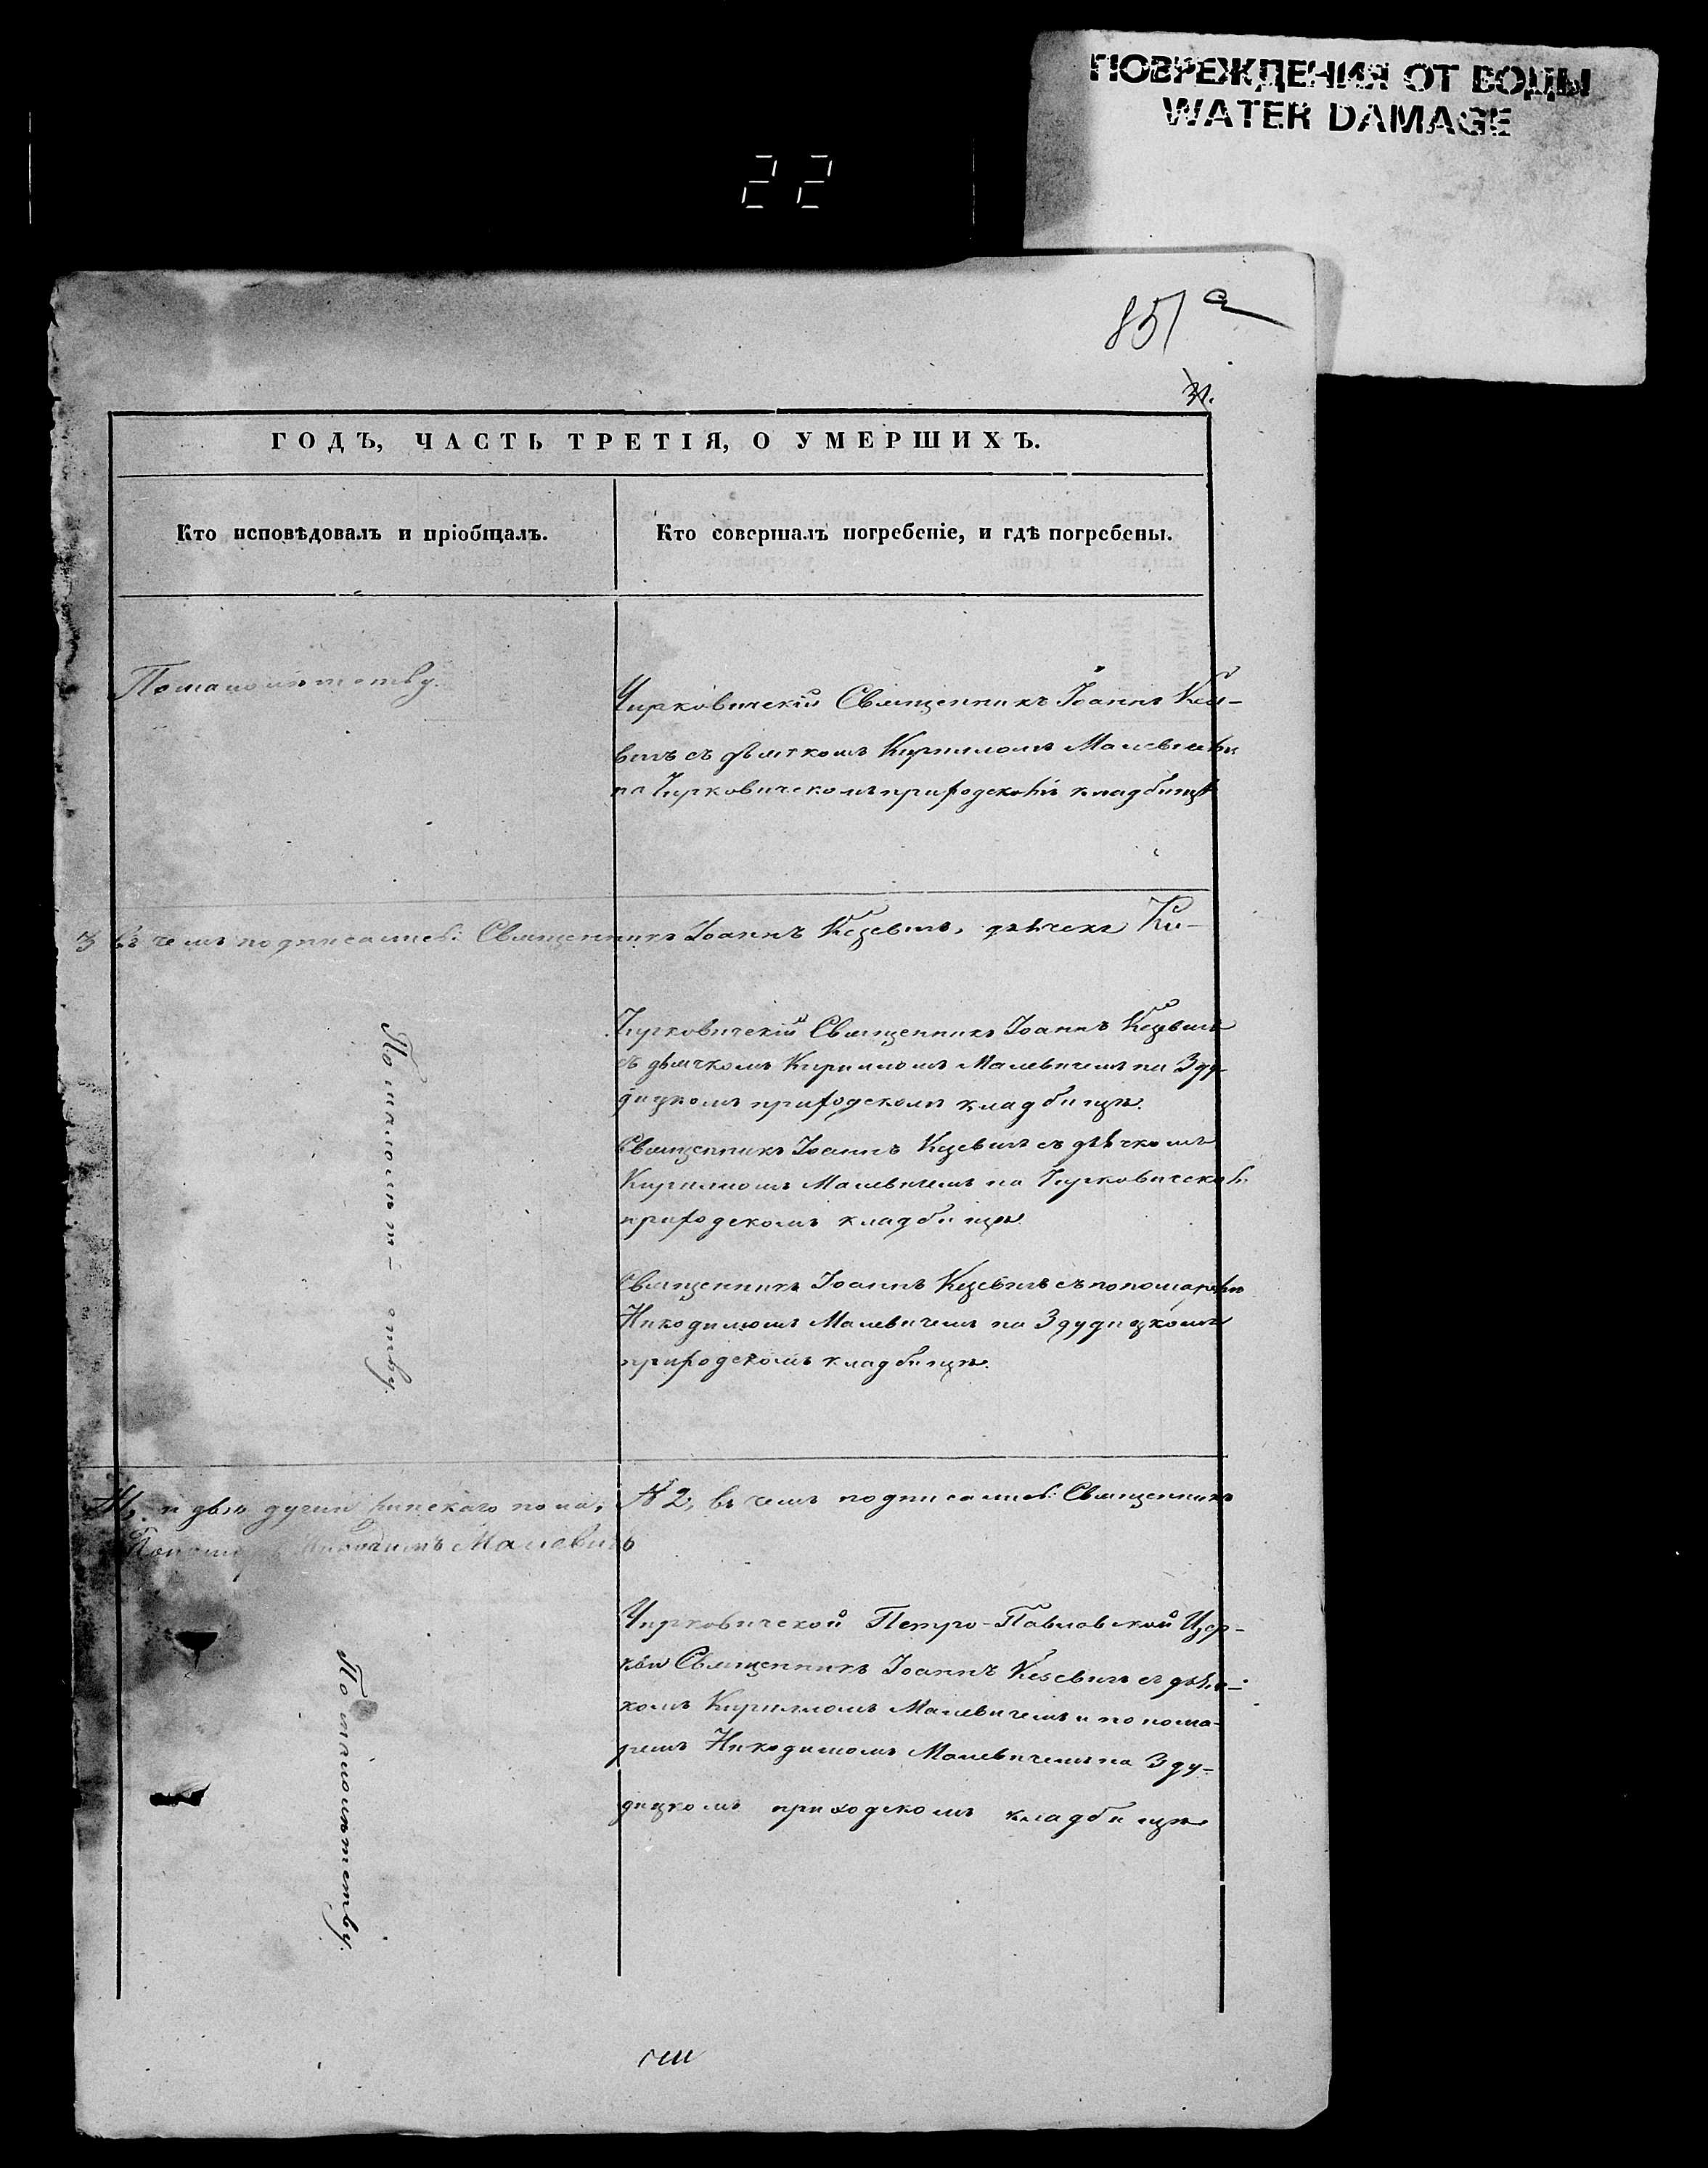 ПОВРЕЖДЕНИЯ ОТ ВОДЫ
WATER DAMAGE
22
85 а
31.
ГОДЪ, ЧАСТЬ ТРЕТІЯ, О УМЕРШИХЪ.
Кто исповѣдовалъ и пріобщалъ.
Кто совершалъ погребеніе, и гдѣ погребены.
По малолѣтству.
Чирковичскій Священникъ Іоаннъ Кез-
вичъ съ дьячкомъ Кирилломъ Малевичемъ
на Чирковичскомъ приходскомъ кладбищѣ
въ чемъ подписались: Священникъ Іоаннъ Кезевичъ, дьячекъ Ки-
По малолѣт-ству.
Чирковичскій Священникъ Іоаннъ Кезевичъ
съ дьячкомъ Кирилломъ Малевичемъ на Зду-
дицкомъ приходскомъ кладбищѣ.
Священникъ Іоаннъ Кезевичъ съ дьячкомъ
Кирилломъ Малевичемъ на Чирковичском
приходскомъ кладбищѣ.
Священникъ Іоаннъ Кезевичъ съ пономаремъ
Никодимомъ Малевичемъ на Здудицкомъ
приходскомъ кладбищѣ.
и два пола, № 2, въ чемъ подписались: Священникъ
Пономарь Никодимъ Малевичъ
По малолѣтству.
Чирковичской Петро-Павловской Цер-
кви Священникъ Іоаннъ Кезевичъ съ дьяч-
комъ Кирилломъ Малевичемъ и понома-
ремъ Никодимомъ Малевичемъ на Зду-
дицкомъ приходскомъ кладбищѣ